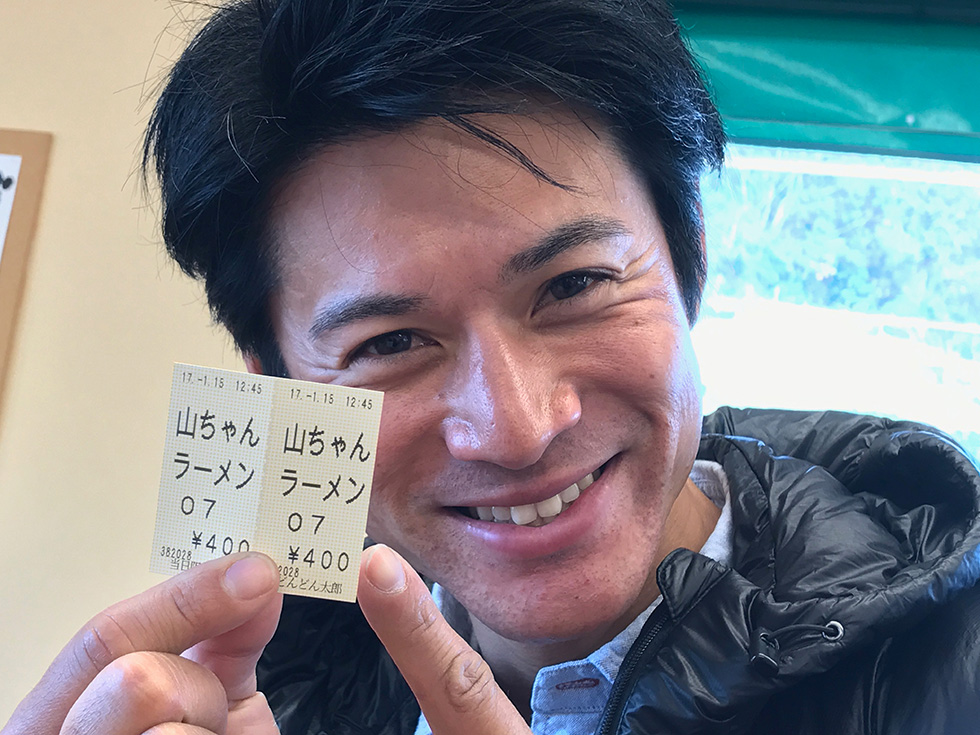 17.-1.15 12:45
山ちゃん
ラーメン
07
¥400
382028
当日限
17.-1.15 12:45
山ちゃん
ラーメン
07
¥400
2028
どんどん太郎